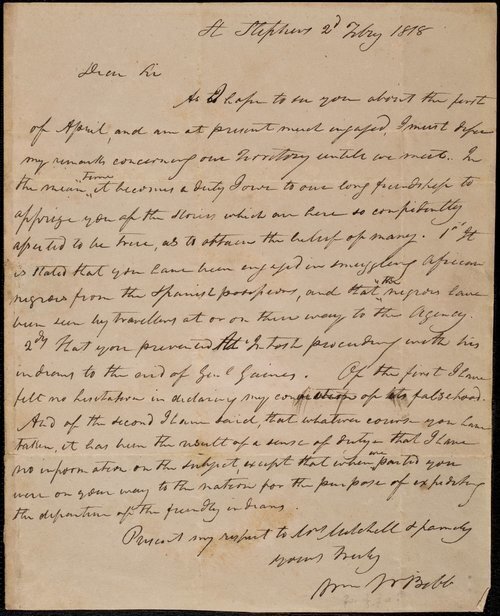 St Stephens 2d Feby 1818
Dear Sir
As I hope to see you about the first
of April, and am at present much engaged, I must defer
my remarks concerning our Territory untill we meet. In
the mean time it becomes a duty I owe to our long friendship to
apprize you of the stories which are here so confidently
asserted to be true, as to obtain the belief of many. 1st It
is stated that you have been engaged in smuggling African
negroes from the Spanish possessions, and that the negroes have
been seen by travellers at or on their way to the Agency.
2dly That you prevented McIntosh proceeding with his
indians to the aid of Genl Gaines. Of the first I have
felt no hesitation in declaring my conviction of its falsehood.
And of the second I have said, that whatever course you have
taken, it has been the result of a sense of duty & that I have
no information on the subject except that when we parted you
were on your way to the nation for the purpose of expediting
the departure of the friendly indians.
Present my respect to Mrs Mitchell & family
Yours truly
Wm W Bibb